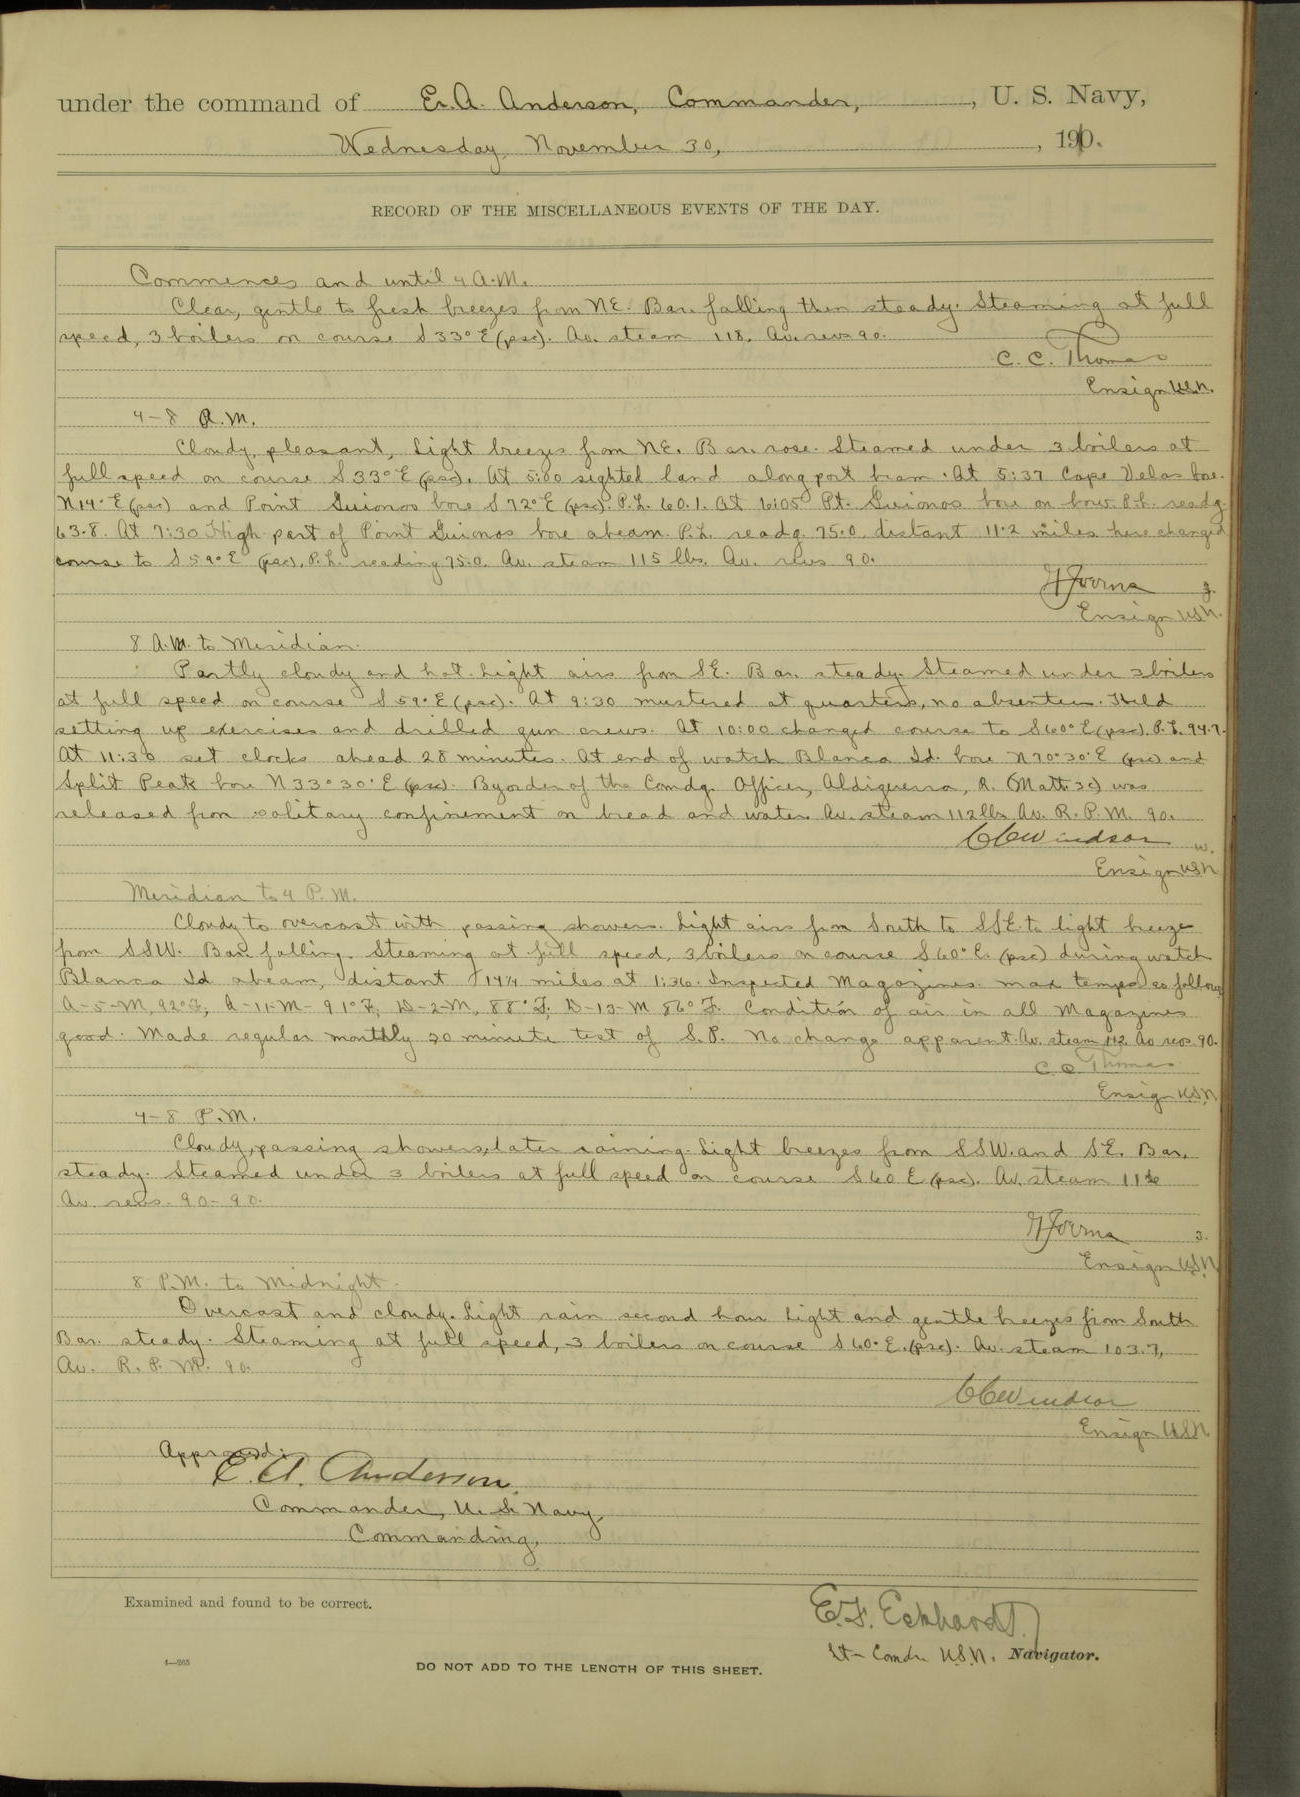 under the command of E. A. Anderson, Commander, , U. S. Navy,
Wednesday, November 30, , 1910.
RECORD OF THE MISCELLANEOUS EVENTS OF THE DAY.
Commences and until 4 A.M.
Clear, gentle to fresh breezes from NE. Bar. falling then steady. Steaming at full
speed, 3 boilers on course S 33° E (psc). Av. steam 118. Av. revs 90.
C. C. Thomas
Ensign U.S.N.
4-8 A.M.
Cloudy, pleasant, light breezes from NE. Bar. rose. Steamed under 3 boilers at
full speed on course S 33° E (psc). At 5:00 sighted land along port beam. At 5:37 Cape Velas bore
N 14° E (psc) and Point Guionos bore S 72° E (psc). P.L. 60.1. At 6:05 Pt. Guionos bore on bow. P.L. readg.
63.8. At 7:30 High part of Point Guionos bore abeam. P.L. readg. 75.0, distant 11.2 miles here changed
course to S 59° E (psc), P.L. reading 75.0. Av. steam 115 lbs. Av. revs 90.
Ensign U.S.N.
8 A.M. to Meridian.
Partly cloudy and hot. Light airs from SE. Bar. steady. Steamed under 3 boilers
at full speed on course S 59° E (psc). At 9:30 mustered at quarters, no absentees. Held
setting up exercises and drilled gun crews. At 10:00 changed course to S 60° E (psc). P.L. 94.7.
At 11:30 set clocks ahead 28 minutes. At end of watch Blanca Id. bore N 70° 30' E (psc) and
Split Peak bore N 33° 30' E (psc). By order of the Comdg. Officer, Aldiguerra, R. (Matt 3c) was
released from solitary confinement on bread and water. Av. steam 112 lbs. Av. R. P. M. 90.
CC Windsor
Ensign U.S.N
Meridian to 4 P.M.
Cloudy to overcast with passing showers. Light airs from South to SSE. to light breeze
from SSW. Bar. falling. Steaming at full speed, 3 boilers on course S 60° E. (psc) during watch
Blanca Id abeam, distant 14¼ miles at 1:36. Inspected Magazines. max temps. as follows
A-5-M, 92° F; A-11-M- 91° F; D-2-M, 88° F; D-13-M 86° F. Condition of air in all Magazines
good. Made regular monthly 20 minute test of S.P. No change apparent. Av. steam 112 Av revs. 90.
C C Thomas
Ensign U.S.N
4-8 P.M.
Cloudy, passing showers, later raining. Light breezes from SSW. and SE. Bar.
steady. Steamed under 3 boilers at full speed on course S 60 E (psc). Av. steam
Av revs. 90-90.
Ensign U.S.N
8 P.M. to Midnight.
Overcast and cloudy. Light rain second hour. Light and gentle breezes from South
Bar. steady. Steaming at full speed, 3 boilers on course S 60° E. (psc). Av. steam 103.7,
Av. R. P. M. 90.
CC Windsor
Ensign U.S.N
Approved:
E. A. Anderson.
Commander, U. S. Navy,
Commanding.
Examined and found to be correct.
E. F. Eckhardt.
Lt-Comdr U.S.N. Navigator.
4—265
DO NOT ADD TO THE LENGTH OF THIS SHEET.